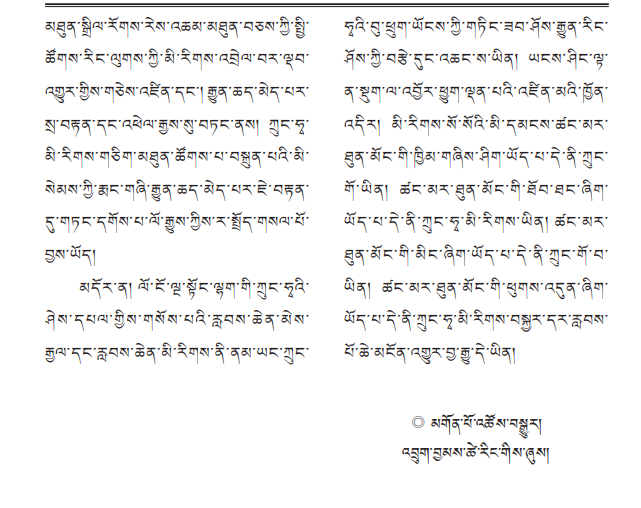 མཐུན་སྒྲིལ་རོགས་རེས་འཆམ་མཐུན་བཅས་ཀྱི་སྤྱི་
ཚོགས་རིང་ལུགས་ཀྱི་མི་རིགས་འབྲེལ་བར་ལྡབ་
འགྱུར་གྱིས་གཅེས་འཛིན་དང་། རྒྱུན་ཆད་མེད་པར་
སྲ་བརྟན་དང་འཕེལ་རྒྱས་སུ་བཏང་ནས། ཀྲུང་ཧྭ་
མི་རིགས་གཅིག་མཐུན་ཚོགས་པ་བསྐྲུན་པའི་མི་
སེམས་ཀྱི་རྨང་གཞི་རྒྱུན་ཆད་མེད་པར་ཇེ་བརྟན་
དུ་གཏང་དགོས་པ་ལོ་རྒྱུས་ཀྱིས་ར་སྤྲོད་གསལ་པོ་
བྱས་ཡོད།
མདོར་ན། ལོ་ངོ་ལྔ་སྟོང་ལྷག་གི་ཀྲུང་ཧྭའི་
ཤེས་དཔལ་གྱིས་གསོས་པའི་རླབས་ཆེན་མེས་
རྒྱལ་དང་རླབས་ཆེན་མི་རིགས་ནི་ནམ་ཡང་ཀྲུང་
ཧྭའི་བུ་ཕྲུག་ཡོངས་ཀྱི་གཏིང་ཟབ་ཤོས་རྒྱུན་རིང་
ཤོས་ཀྱི་བརྩེ་དུང་འཆང་ས་ཡིན། ཡངས་ཤིང་ལྟ་
ན་སྡུག་ལ་འབྱོར་ཕྱུག་ལྡན་པའི་འཛིན་མའི་ཁྱོན་
འདིར། མི་རིགས་སོ་སོའི་མི་དམངས་ཚང་མར་
ཐུན་མོང་གི་ཁྱིམ་གཞིས་ཤིག་ཡོད་པ་དེ་ནི་ཀྲུང་
གོ་ཡིན། ཚང་མར་ཐུན་མོང་གི་ཐོབ་ཐང་ཞིག་
ཡོད་པ་དེ་ནི་ཀྲུང་ཧྭ་མི་རིགས་ཡིན། ཚང་མར་
ཐུན་མོང་གི་མིང་ཞིག་ཡོད་པ་དེ་ནི་ཀྲུང་གོ་བ་
ཡིན། ཚང་མར་ཐུན་མོང་གི་ཕུགས་འདུན་ཞིག་
ཡོད་པ་དེ་ནི་ཀྲུང་ཧྭ་མི་རིགས་བསྐྱར་དར་རླབས་
པོ་ཆེ་མངོན་འགྱུར་བྱ་རྒྱུ་དེ་ཡིན།
◎ མགོན་པོ་འཚོས་བསྒྱུར།
འབྲུག་བྱམས་ཚེ་རིང་གིས་ཞུས།